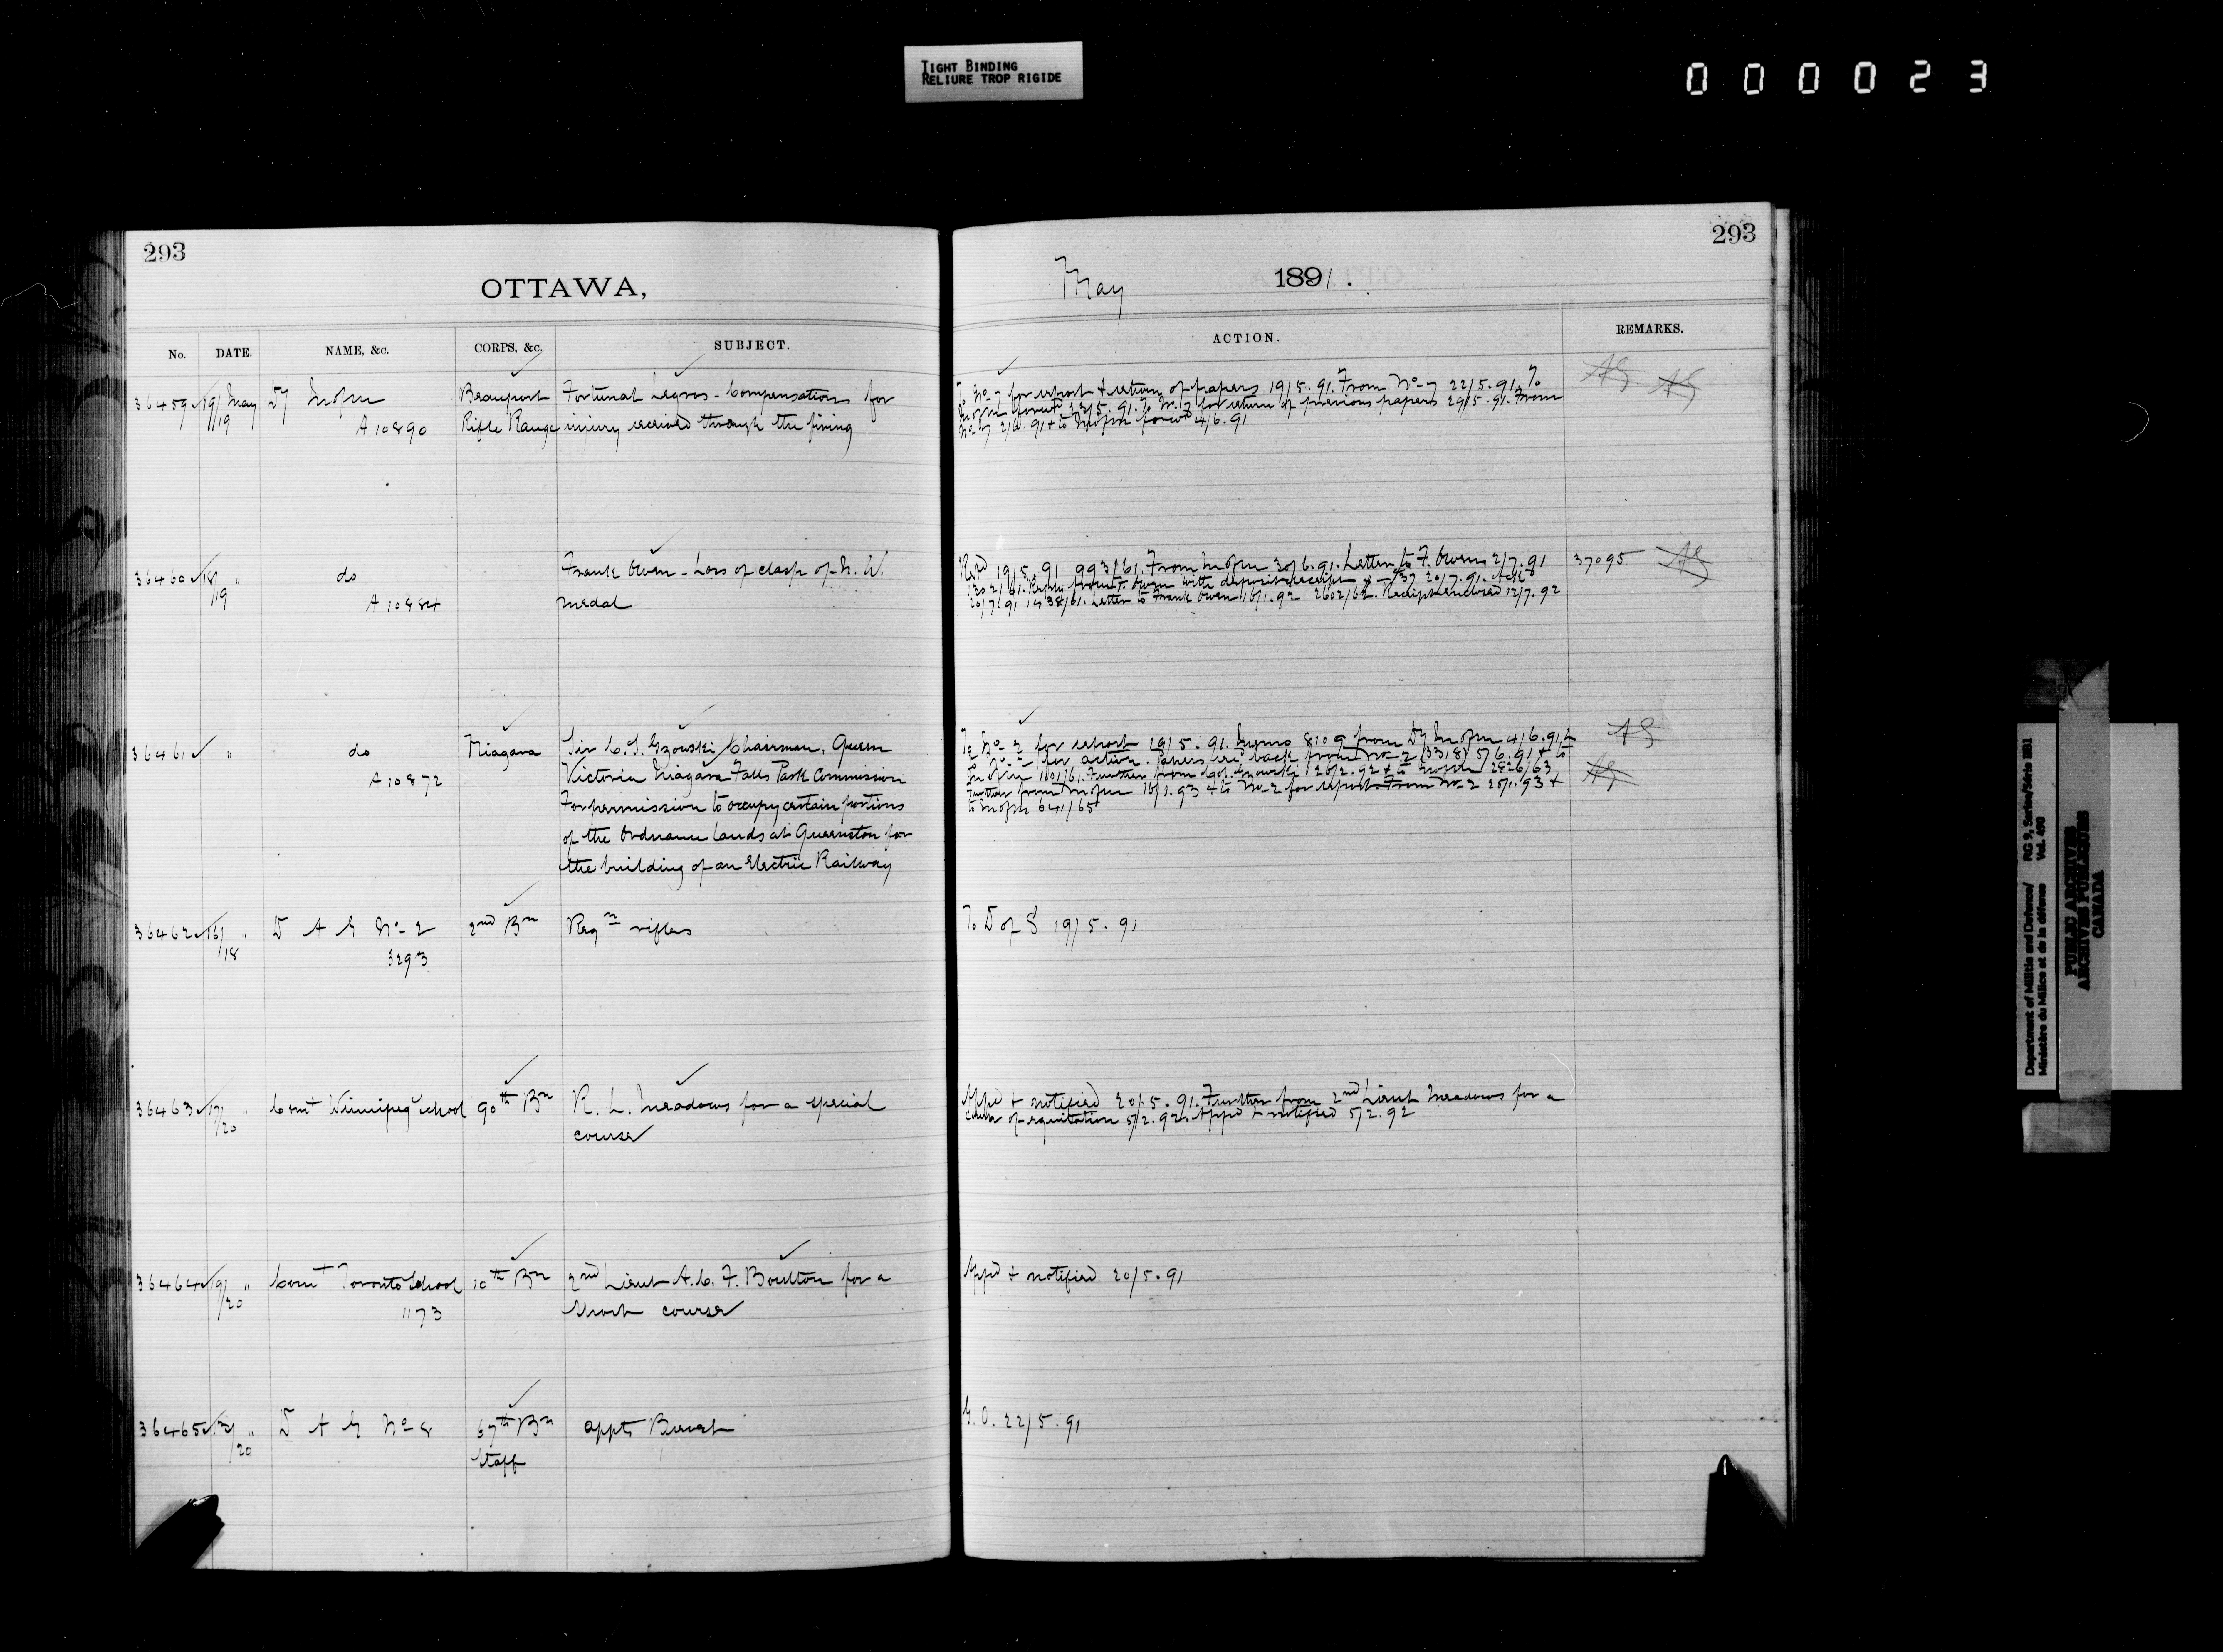 TIGHT BINDING
RELIURE TROP RIGIDE
000023
293
OTTAWA,
No. DATE. NAME, &c. CORPS, &c. SUBJECT.
36459 19/19 May Dy M of M Beauport Fortunat Legros - Compensation for
A 10890 Rifle Range injury received through the firing
36460 18/19 " do Frank Owen - Loss of clasp of N. W.
A 10884 medal
36461 " do Niagara Sir C. S. Gzowski, Chairman, Queen
A 10872 Victoria Niagara Falls Park Commission
For permission to occupy certain portions
of the Ordnance lands at Queenston for
the building of an Electric Railway
36462 16/18 " D A G No 2 2nd Bn Reqn rifles
3293
36463 17/20 " Comt Winnipeg School 90th Bn R. L. Meadows for a special
course
36464 19/20 " Comt Toronto School 10th Bn 2nd Lieut A. C. F. Boulton for a
1173 Short course
36465 /20 " D A G No 8 67th Bn appts Brevet
Staff
293
May 1891.
ACTION. REMARKS.
To No 7 for report & return of papers 19/5.91. From No 7 22/5.91. To
M of M forwd 22/5.91. To No 7 for return of previous papers 29/5.91. From
No 7 2/6.91 & to M of M forwd 4/6.91
Repd 19/5.91 993/61. From M of M 30/6.91. Letter to F. Owen 2/7.91 37095
1302/61. Reply from F. Owen with deposit receipt 20/7.91. Ackd
20/7.91 1438/61. Letter to Frank Owen 16/1.92 2602/62. Receipt enclosed 12/7.92
To No 2 for report 19/5.91. Memo 8109 from Dy M of M 4/6.91 &
to No 2 for action. Papers recd back from No 2 (3318) 5/6.91 & to
M of M 1101/61. Further from Col. Gzowski 26/2.92 & to M of M 2826/63
Further from M of M 16/1.93 & to No 2 for report. From No 2 25/1.93 &
to M of M 641/65
To D of S 19/5.91
Appd & notified 20/5.91. Further from 2nd Lieut Meadows for a
course of equitation 5/2.92. Appd & notified 5/2.92
Appd & notified 20/5.91
G.O. 22/5.91
Department of Militia and Defence/ RG 9, Series/Série IIB1
Ministère du Milice et de la défense Vol. 690
PUBLIC ARCHIVES
ARCHIVES PUBLIQUES
CANADA